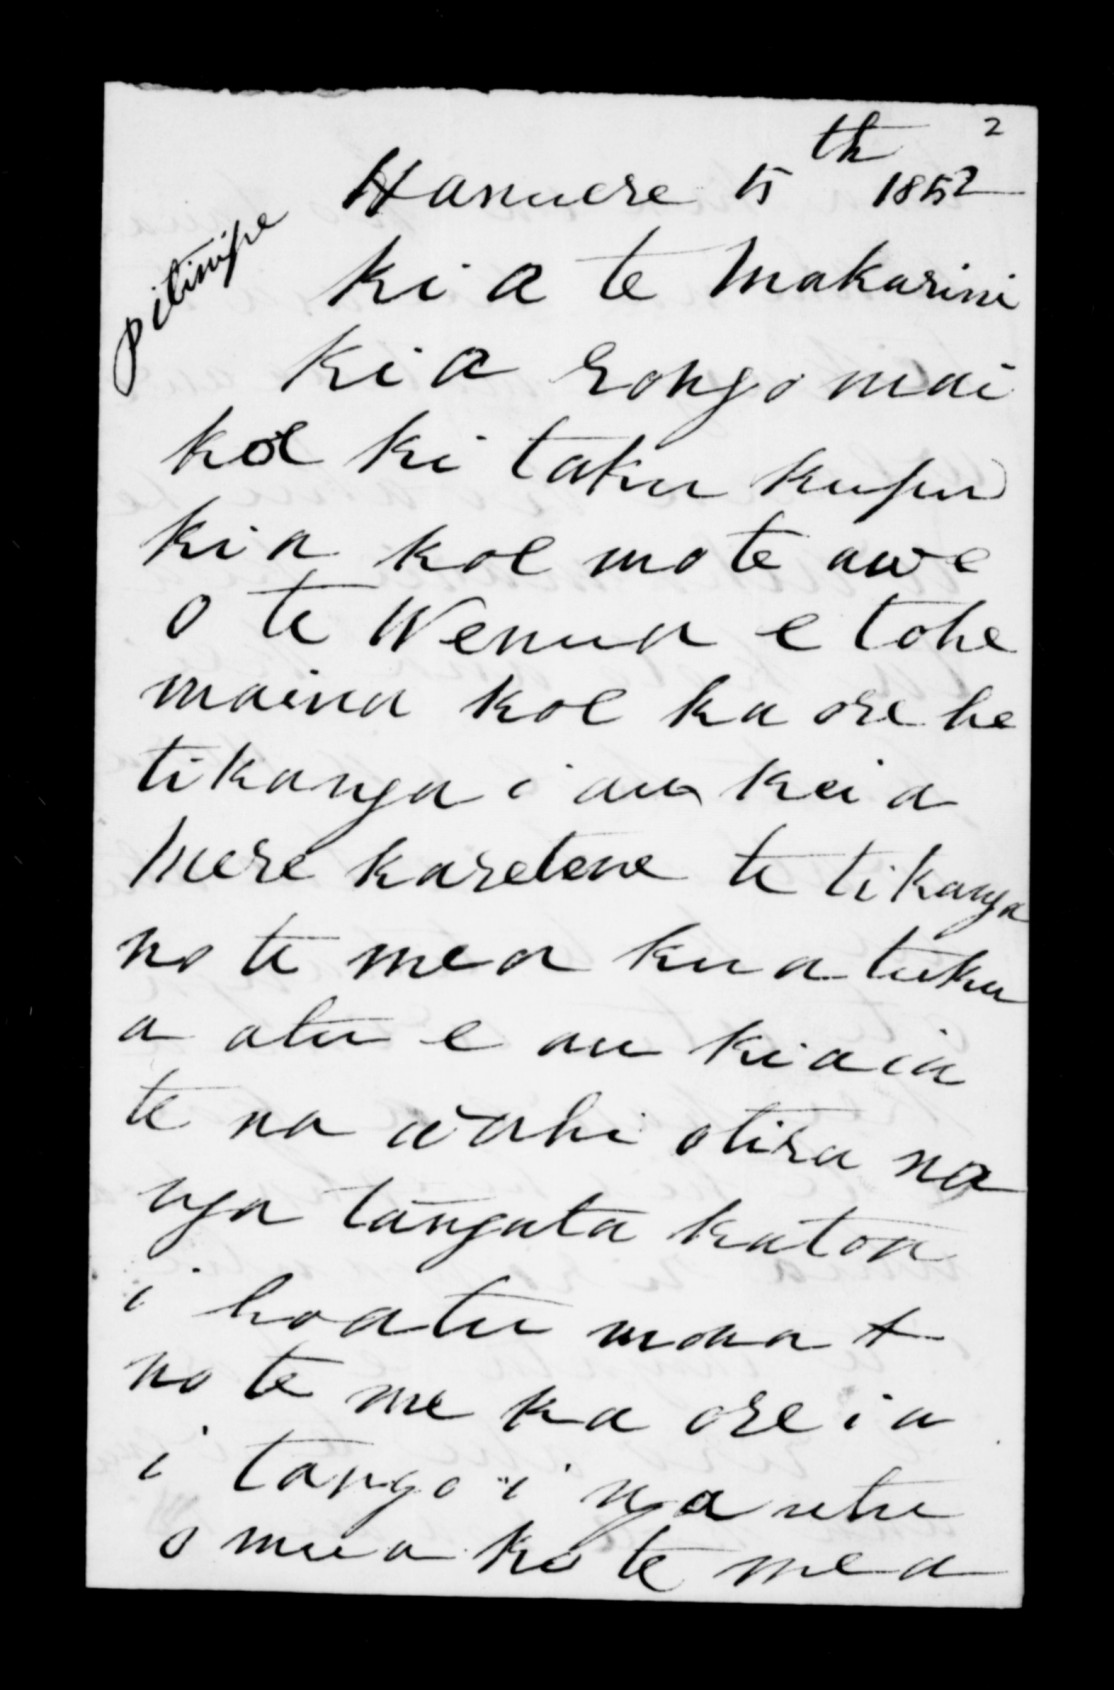 2
Hanuere 15th 1852
pitinipe
ki a te Makarini
kia rongo mai
koe ki taku kupu
kia koe mo te awe
o te Wenua e tohe
maina koe ka ore he
tikanga i au kei a
Mere karetene te tikanga
no te mea kua tuku
a atu e au kiaia
te na wahi otira na
nga tangata katoa
i hoatu mona +
no te me ka ore i a
i tango i nga utu
o mua ko te mea